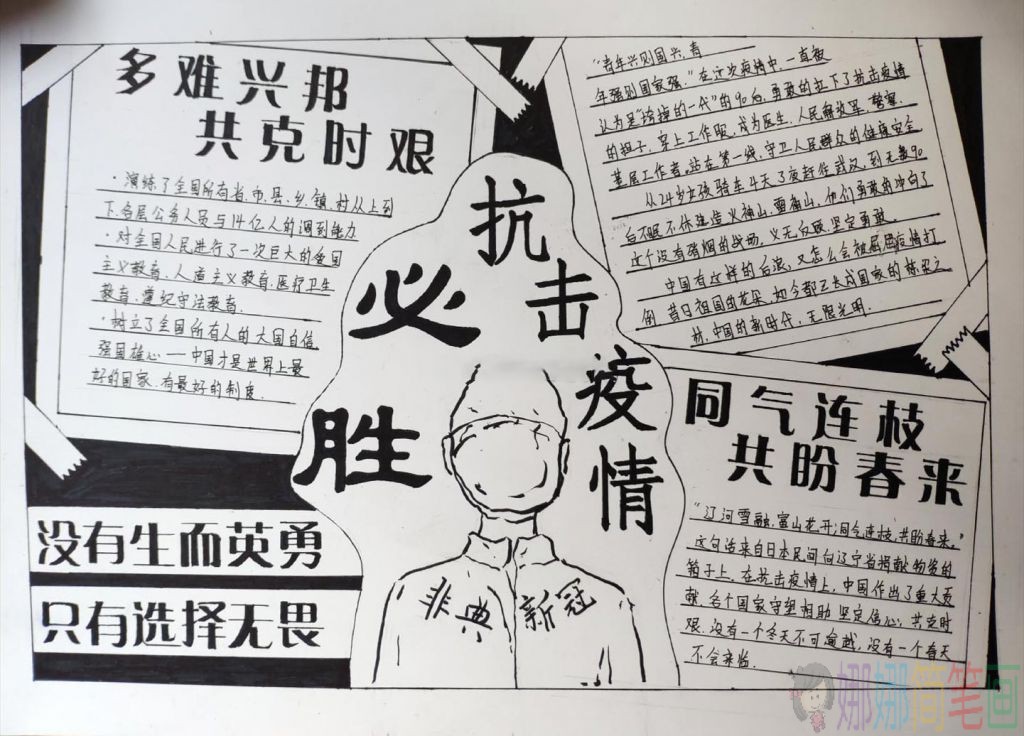 多难兴邦
共克时艰
·演练了全国所有省.市.县.乡.镇.村从上到
下.各层公务人员与14亿人的调到能力
·对全国人民进行了一次巨大的爱国
主义教育.人道主义教育.医疗卫生
教育.遵纪守法教育.
·树立了全国所有人的大国自信
强国雄心——中国才是世界上最
好的国家.有最好的制度.
抗击疫情
必胜
"青年兴则国兴.青
年强则国家强."在这次疫情中.一直被
认为是"垮掉的一代"的90后.勇敢的扛下了抗击疫情
的担子.穿上工作服.成为医生.人民解放军.警察.
基层工作者.站在第一线.守卫人民群众的健康安全
从24岁女孩骑车4天3夜赶往武汉.到无数90
后不眠不休建造火神山.雷神山.他们勇敢的冲向了
这个没有硝烟的战场.义无反顾.坚定勇敢.
中国有这样的后浪.又怎么会被屈居疫情打
倒.昔日祖国的花朵.如今都已长成国家的栋梁之
材.中国的新时代.无限光明.
同气连枝
共盼春来
"辽河雪融.富山花开;同气连枝.共盼春来."
这句话来自日本民间向辽宁省捐献物资的
箱子上.在抗击疫情上.中国作出了重大贡
献.各个国家守望相助.坚定信心;共克时
艰.没有一个冬天不可逾越.没有一个春天
不会来临.
没有生而英勇
只有选择无畏
非典 新冠
娜娜简笔画